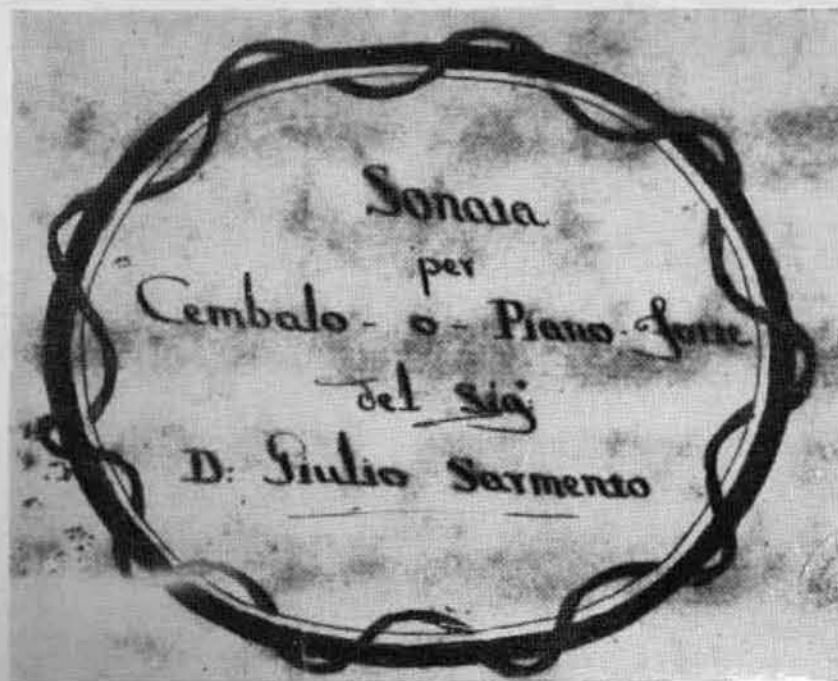 Sonata
per
Cembalo - o - Piano-forte
del Sig.r
D: Giulio Sarmento